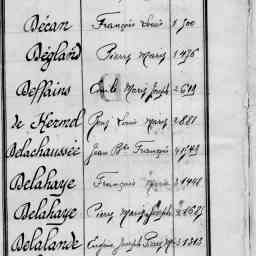 Décan François Louis 1.700
Dégland Pierre Marie 1.476
Deffains Émile Marie Joseph 2.619
de Kermel Louis Marie 2.881
Delachaussée Jean Bte François 4.543
Delahaye François Marie 3.1441
Delahaye Pierre Marie Joseph
Delalande Eugène Joseph Pierre M 3.1313